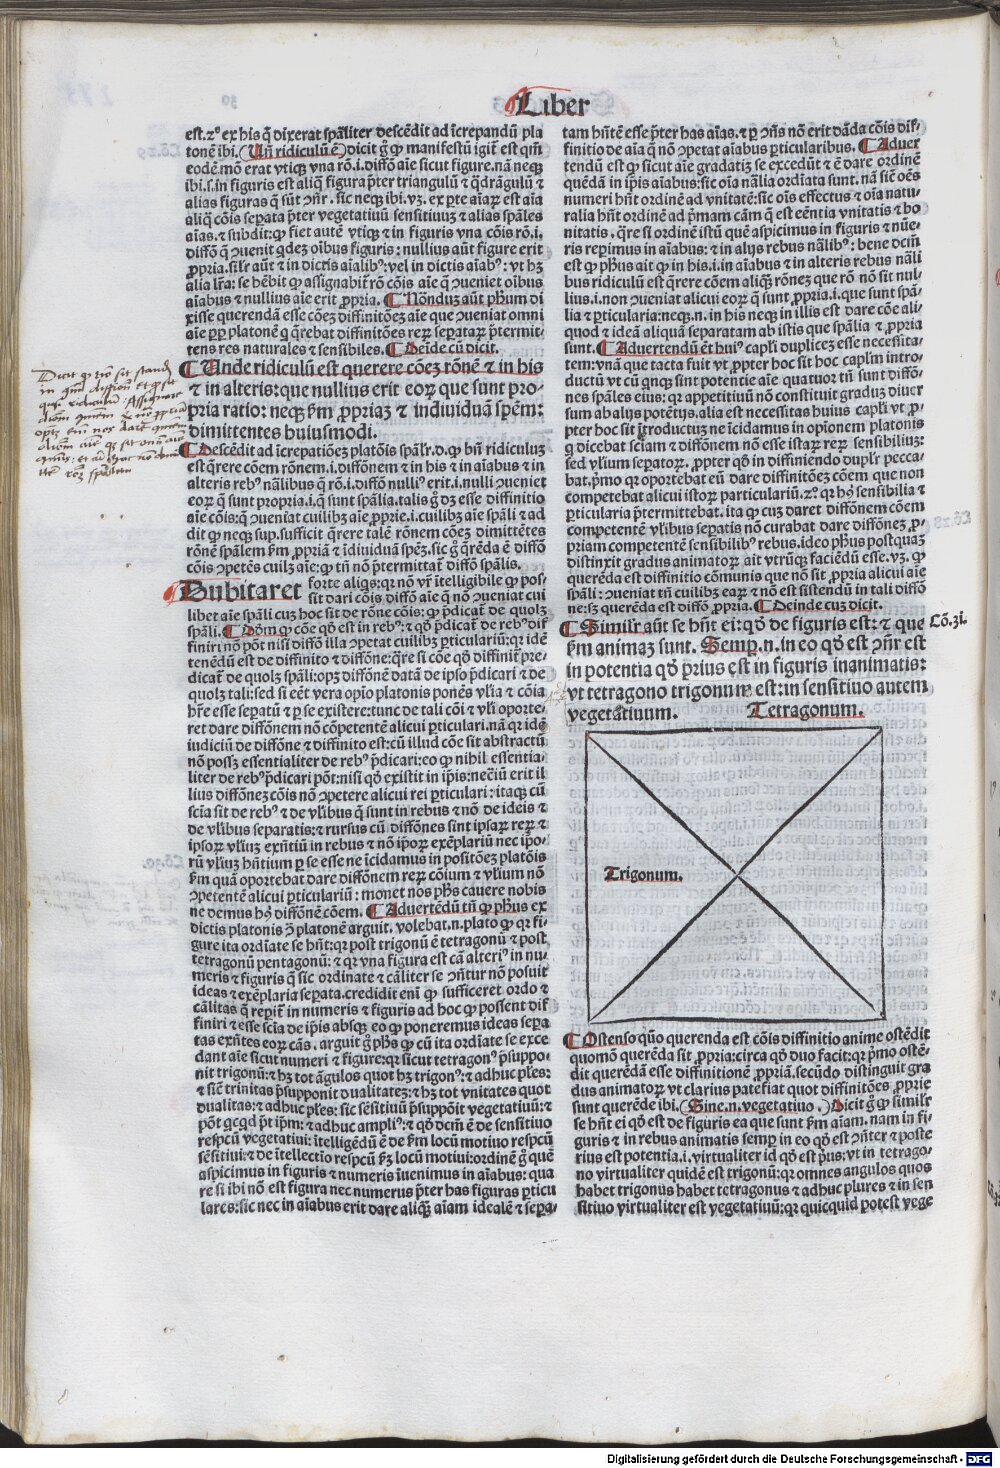 Liber
est.2° ex his q̄ dixerat sp̄aliter descēdit ad īcrepandū pla
tonē ibi.(Uñ ridiculū ē) dicit g̊ ꝙ manifestū igit̄ est qm̄
eodē.mō erat vtiqꝫ vna rō.i.diffō aīe sicut figure.nā neqꝫ
ibi.s.in figuris est aliq̄ figura p̄ter triangulū ⁊ q̄drāgulū ⁊
alias figuras q̄ sūt ꝯñr. sic neqꝫ ibi.vꝫ. ex pte aīaꝝ est aīa
aliq̄ cōis sepata p̄ter vegetatiuū sensitiuuꝫ ⁊ alias sp̄ales
aīas.⁊ subdit:ꝙ fiet autē vtiqꝫ ⁊ in figuris vna cōis rō.i.
diffō q̄ ꝯuenit qdeꝫ oībus figuris: nullius aūt figure erit
ꝓpria.sil̄r aūt ⁊ in dictis aīalibꝰ:vel in dictis aīabꝰ: vt hꝫ
alia lr̄a: se hēbit ꝙ assignabit̄ rō cōis aīe q̄ ꝯueniet oībus
aīabus ⁊ nullius aīe erit ꝓpria. ¶ Nōnduꝫ aūt ph̄um di
xisse querendā esse cōeꝫ diffinitōeꝫ aīe que ꝯueniat omni
aīe ꝑꝑ platonē ꝗ q̄rebat diffinitōes reꝝ sepataꝝ p̄termit/
tens res naturales ⁊ sensibiles. ¶ Deīde cū dicit.
¶ Unde ridiculū est querere cōeꝫ rōnē ⁊ in his
⁊ in alteris: que nullius erit eoꝝ que sunt pro/
pria ratio: neqꝫ ẜm ꝓpriaꝫ ⁊ indiuiduā spēm:
dimittentes huiusmodi.
¶ Descēdit ad īcrepatiōeꝫ platōis sp̄al̄r.d.ꝙ bn̄ ridiculuꝫ
est q̄rere cōem rōnem.i.diffōnem ⁊ in his ⁊ in aīabus ⁊ in
alteris rebꝰ nālibus q̄ rō.i.diffō nulliꝰ erit.i.nulli ꝯueniet
eoꝝ q̄ sunt propria.i.q̄ sunt sp̄alia.talis g̊ dꝫ esse diffinitio
aīe cōis:q̄ ꝯueniat cuilibꝫ aīe ꝓprie.i.cuilibꝫ aīe sp̄ali ⁊ ad
dit ꝙ neqꝫ sup.sufficit q̄rere talē rōnem cōeꝫ dimittētes
rōnē sp̄alem ẜm ꝓpriā ⁊ īdiuiduā spēꝫ.sic g̊ q̄rēda ē diffō
cōis ꝯpetēs cuilꝫ aīe:ꝙ tn̄ nō p̄termittat̄ diffō sp̄alis.
Dubitaret forte aliqs:qꝛ nō vr̄ ītelligibile ꝙ pos/
sit dari cōis diffō aīe q̄ nō ꝯueniat cui
libet aīe sp̄ali cuꝫ hoc sit de rōne cōis: ꝙ p̄dicat̄ de quolꝫ
sp̄ali. ¶ Dōm ꝙ cōe qō est in rebꝰ: ⁊ qō p̄dicat̄ de rebꝰ dif
finiri nō pōt nisi diffō illa ꝯpetat cuilibꝫ ꝑticulariū:qꝛ idē
tenēdū est de diffinito ⁊ diffōne:q̄re si cōe qō diffinit̄ pre/
dicat̄ de quolꝫ sp̄ali:opꝫ diffōnē datā de ipso p̄dicari ⁊ de
quolꝫ tali:sed si eēt vera opīo platonis ponēs vl̄ia ⁊ cōia
hr̄e esse sepatū ⁊ ꝑ se existere:tunc de tali cōi ⁊ vl̄i oporte/
ret dare diffōnem nō cōpetentē alicui ꝑticulari.nā qꝛ idē
iudiciū de diffōne ⁊ diffinito est:cū illud cōe sit abstractū
nō possꝫ essentialiter de rebꝰ p̄dicari:eo ꝙ nihil essentia/
liter de rebꝰ p̄dicari pōt:nisi qō existit in ip̄is:neciū erit il
lius diffōneꝫ cōis nō ꝯpetere alicui rei ꝑticulari:itaqꝫ cū
scīa sit de rebꝰ ⁊ de vl̄ibus q̄ sunt in rebus ⁊ nō de ideis ⁊
de vl̄ibus separatis:⁊ rursus cū diffōnes sint ipsaꝝ reꝝ ⁊
ipsoꝝ vl̄iuꝫ exñtiū in rebus ⁊ nō ip̄oꝝ exēplariū nec ip̄o/
rū vl̄iuꝫ hñtium ꝑ se esse ne īcidamus in positōeꝫ platōis
ẜm quā oportebat dare diffōnem reꝝ cōium ⁊ vl̄ium nō
ꝯpetentē alicui ꝑticulariū: monet nos ph̄s cauere nobis
ne demus hꝰ diffōnē cōem. ¶ Aduertēdū tn̄ ꝙ ph̄us ex
dictis platonis ꝯ platonē arguit. volebat.n.plato ꝙ qꝛ fi/
gure ita ordīate se hn̄t:qꝛ post trigonū ē tetragonū ⁊ post
tetragonū pentagonū: ⁊ qꝛ vna figura est cā alteriꝰ in nu/
meris ⁊ figuris q̄ sic ordinate ⁊ cāliter se ꝯñtur nō posuit
ideas ⁊ exēplaria sepata.credidit enī ꝙ sufficeret ordo ⁊
cālitas q̄ repit̄ in numeris ⁊ figuris ad hoc ꝙ possent dif
finiri ⁊ esse scīa de ip̄is absqꝫ eo ꝙ poneremus ideas sepa
tas exñtes eoꝝ cās. arguit g̊ ph̄s ꝙ cū ita ordīate se exce
dant aīe sicut numeri ⁊ figure:qꝛ sicut tetragonꝰ p̄suppo/
nit trigonū:⁊ hꝫ tot āgulos quot hꝫ trigonꝰ:⁊ adhuc pl̄es:
⁊ sīc̄ trinitas p̄supponit dualitateꝫ:⁊ hꝫ tot vnitates quot
dualitas:⁊ adhuc pl̄es: sic sēsitiuū p̄suppōit vegetatiuū:⁊
pōt qcqd pt̄ ip̄m: ⁊ adhuc ampliꝰ:⁊ qō dcm̄ ē de sensitiuo
respcū vegetatiui: ītelligēdū ē de ẜm locū motiuo respcū
sēsitiui:⁊ de ītellectio respcū ẜꝫ locū motiui:ordinē g̊ quē
aspicimus in figuris ⁊ numeris īuenimus in aīabus: qua
re si ibi nō est figura nec numerus p̄ter has figuras ꝑticu
lares:sic nec in aīabus erit dare aliqꝫ aīam idealē ⁊ sepa/
tam hn̄tē esse p̄ter has aīas.⁊ ꝑ ꝯñs nō erit dāda cōis dif/
finitio de aīa q̄ nō ꝯpetat aīabus ꝑticularibus. ¶ Aduer
tendū est ꝙ sicut aīe gradatiꝫ se excedūt ⁊ ē dare ordinē
quēdā in ip̄is aīabus:sic oīa nālia ordīata sunt. nā sic̄ oēs
numeri hn̄t ordinē ad vnitatē:sic oīs effectus ⁊ oīa natu/
ralia hn̄t ordinē ad p̄mam cām q̄ est eēntia vnitatis ⁊ bo
nitatis. q̄re si ordinē istū quē aspicimus in figuris ⁊ nūe/
ris reperimus in aīabus: ⁊ in alijs rebus nālibꝰ: bene dcm̄
est ꝙ ph̄us ait ꝙ in his.i.in aīabus ⁊ in alteris rebus nāli
bus ridiculū est q̄rere cōem aliqꝫ rōneꝫ que rō nō sit nul/
lius.i.non ꝯueniat alicui eoꝝ q̄ sunt ꝓpria.i.que sunt sp̄a/
lia ⁊ ꝑticularia:neqꝫ.n. in his neqꝫ in illis est dare cōe ali/
quod ⁊ ideā aliquā separatam ab istis que sp̄alia ⁊ ꝓpria
sunt. ¶ Aduertendū ēt huiꝰ capl̄i dupliceꝫ esse necessita/
tem:vnā que tacta fuit vt ꝓpter hoc sit hoc capl̄m intro/
ductū vt cū qnqꝫ sint potentie aīe quatuor tn̄ sunt diffō/
nes spāles eius: qꝛ appetitiuū nō constituit graduꝫ diuer
sum ab alijs potētijs.alia est necessitas huius capl̄i vt ꝓ/
pter hoc sit ītroductuꝫ ne īcidamus in opionem platonis
q̄ dicebat sciam ⁊ diffōnem nō esse istaꝝ reꝝ sensibiliuꝫ:
sed vl̄ium sepatoꝝ. ꝓpter qō in diffiniendo dupl̄r pecca/
bat.p̄mo qꝛ oportebat eū dare diffinitōeꝫ cōem que non
competebat alicui istoꝝ particulariū.2°.qꝛ hꝰ sensibilia ⁊
ꝑticularia p̄termittebat. ita ꝙ cuꝫ daret diffōnem cōem
competentē vl̄ibus sepatis nō curabat dare diffōneꝫ ꝓ/
priam competentē sensibilibꝰ rebus.ideo ph̄us postquaꝫ
distinxit gradus animatoꝝ ait vtrūqꝫ faciēdū esse.vꝫ. ꝙ
querēda est diffinitio cōmunis que nō sit ꝓpria alicui aīe
sp̄ali: ꝯueniat tn̄ cuilibꝫ eaꝝ ⁊ nō est sistendū in tali diffō
ne:sꝫ querēda est diffō ꝓpria. ¶ Deinde cuꝫ dicit.
¶ Simil̄r aūt se hn̄t ei:qō de figuris est: ⁊ que
ẜm animaꝫ sunt. Semꝑ.n.in eo qō est ꝯñr est
in potentia qō prius est in figuris inanimatis:
vt tetragono trigonum est:in sensitiuo autem
vegetatiuum.
Cō.31.
Tetragonum.
Trigonum.
¶ Ostenso quō querenda est cōis diffinitio anime ostēdit
quomō querēda sit ꝓpria:circa qō duo facit:qꝛ p̄mo ostē/
dit querēdā esse diffinitionē ꝓpriā.secūdo distinguit gra
dus animatoꝝ vt clarius patefiat quot diffinitōes ꝓprie
sunt querēde ibi.(Sine.n.vegetatiuo.) Dicit g̊ ꝙ simil̄r
se hn̄t ei qō est de figuris ea que sunt ẜm aīam. nam in fi/
guris ⁊ in rebus animatis semꝑ in eo qō est ꝯñter ⁊ poste
rius est potentia.i.virtualiter id qō est p̄us:vt in tetrago/
no virtualiter quidē est trigonū:qꝛ omnes angulos quos
habet trigonus habet tetragonus ⁊ adhuc plures ⁊ in sen
sitiuo virtualiter est vegetatiuū:qꝛ quicquid potest vege
Digitalisierung gefördert durch die Deutsche Forschungsgemeinschaft - DFG